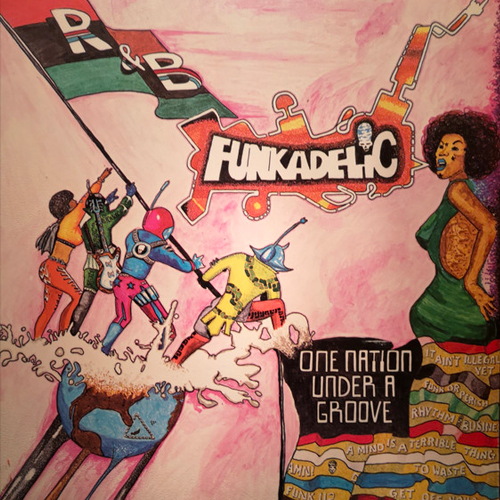 R & B
FUNKADELIC
ONE NATION
UNDER A
GROOVE
IT AIN'T ILLEGAL
YET
FUNK OR PERISH
RHYTHM & BUSINE
A MIND IS A TERRIBLE THING
TO WASTE
AMN!
FUNK IT?
GET